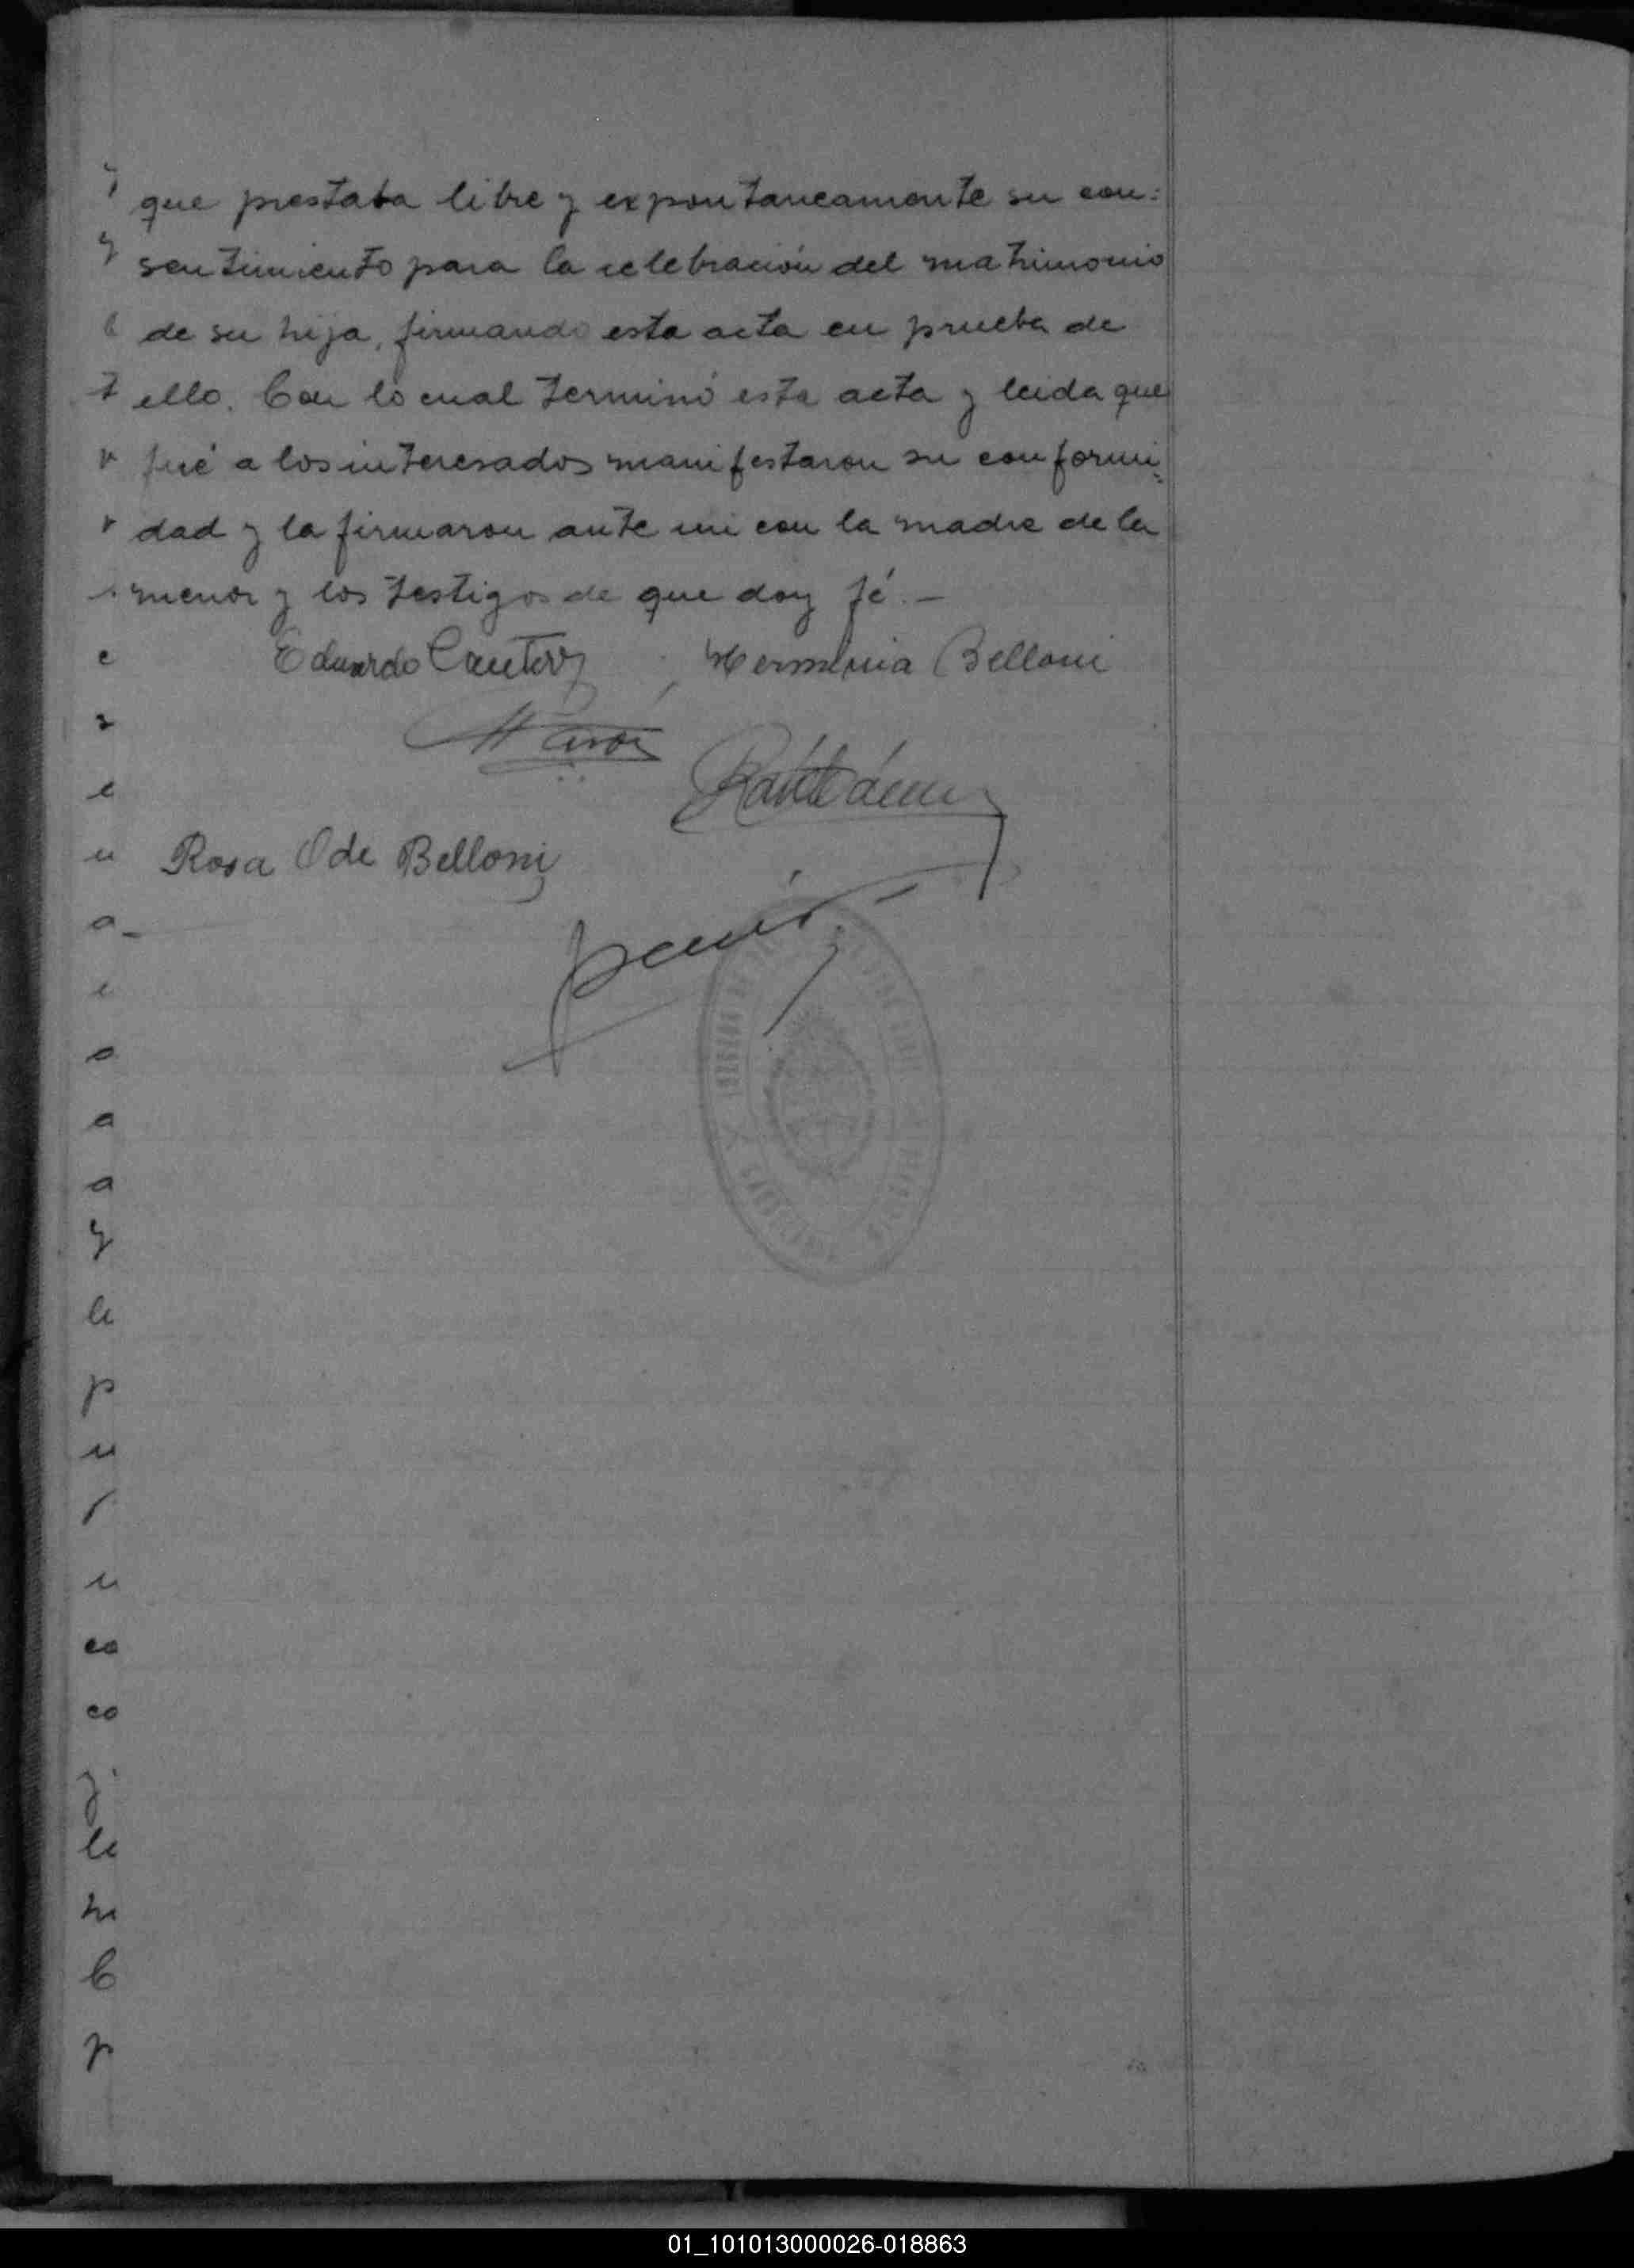 que prestaba libre y expontaneamente su con:
sentimiento para la celebración del matrimonio
de su hija, firmando esta acta en prueba de
ello. Con lo cual terminó esta acta y leida que
fué a los interesados manifestaron su conformi=
dad y la firmaron ante mi con la madre de la
menor y los testigos de que doy fé.—
Eduardo Herminia Belloni
Rosa O de Belloni
01_101013000026-018863